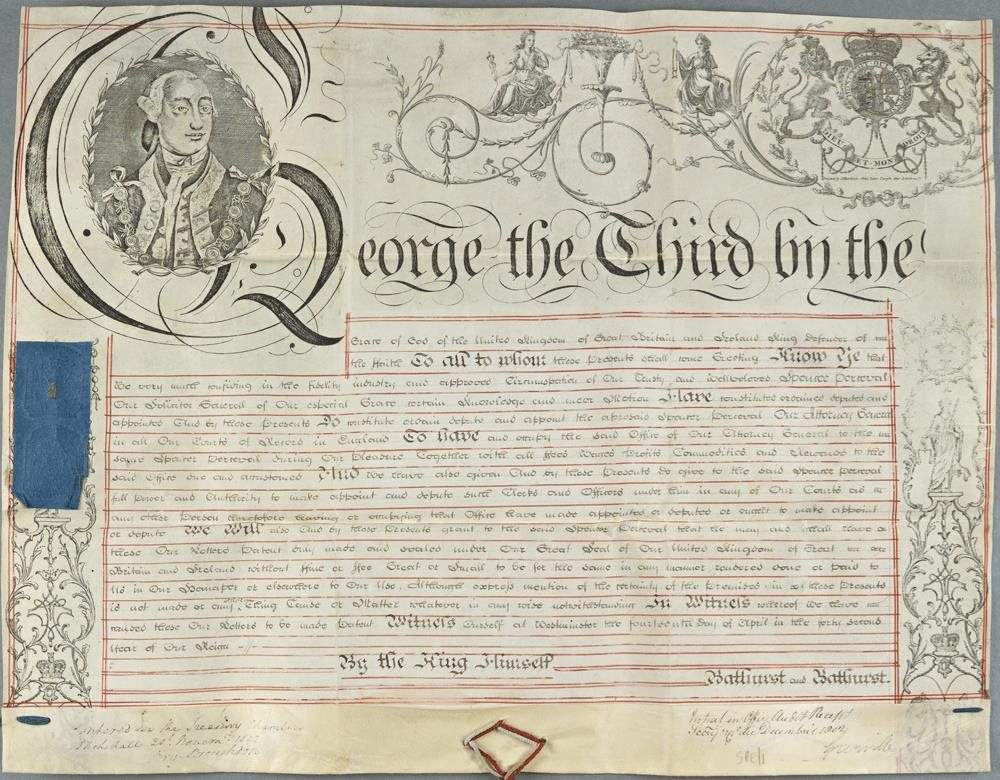 George the Third by the
Grace of God of the United Kingdom of Great Britain and Ireland King Defender of
the Faith To all to whom these Presents shall come Greeting Know Ye that
We very much confiding in the fidelity industry and approved Circumspection of Our Trusty and Wellbeloved Spencer Perceval
Our Solicitor General of Our especial Grace certain Knowledge and meer Motion Have constituted ordained deputed and
appointed And by these Presents Do constitute ordain depute and appoint the aforesaid Spencer Perceval Our Attorney General
in all Our Courts of Record in England To have and occupy the said Office of Our Attorney General to the
same Spencer Perceval during Our Pleasure Together with all ffees Wages Profits Commodities and Rewards to the
said Office due and accustomed And We have also given And by these Presents do give to the said Spencer Perceval
full Power and Authority to make appoint and depute such Clerks and Officers under him in any of Our Courts as
any other Person heretofore having or occupying that Office have made appointed or deputed or ought to make appoint
or depute We Will also And by these Presents grant to the said Spencer Perceval that he may and shall have
these Our Letters Patent duly made and sealed under Our Great Seal of Our United Kingdom of Great
Britain and Ireland without ffine or ffee Great or Small to be for the same in any manner rendered done or paid to
Us in Our Hanaper or elsewhere to Our Use Although express mention of the certainty of the Premises in these Presents
is not made or any other Thing Cause or Matter whatever in any wise notwithstanding In Witness whereof We have
caused these Our Letters to be made Patent Witness Ourself at Westminster the fourteenth day of April in the forty second
Year of Our Reign
By the King Himself
Bathurst and Bathurst.
DIEU ET MON DROIT
Entered in the Treasury Chambers
Whitehall 20th Novemr
Audit Receipt
December 1802
Grenville